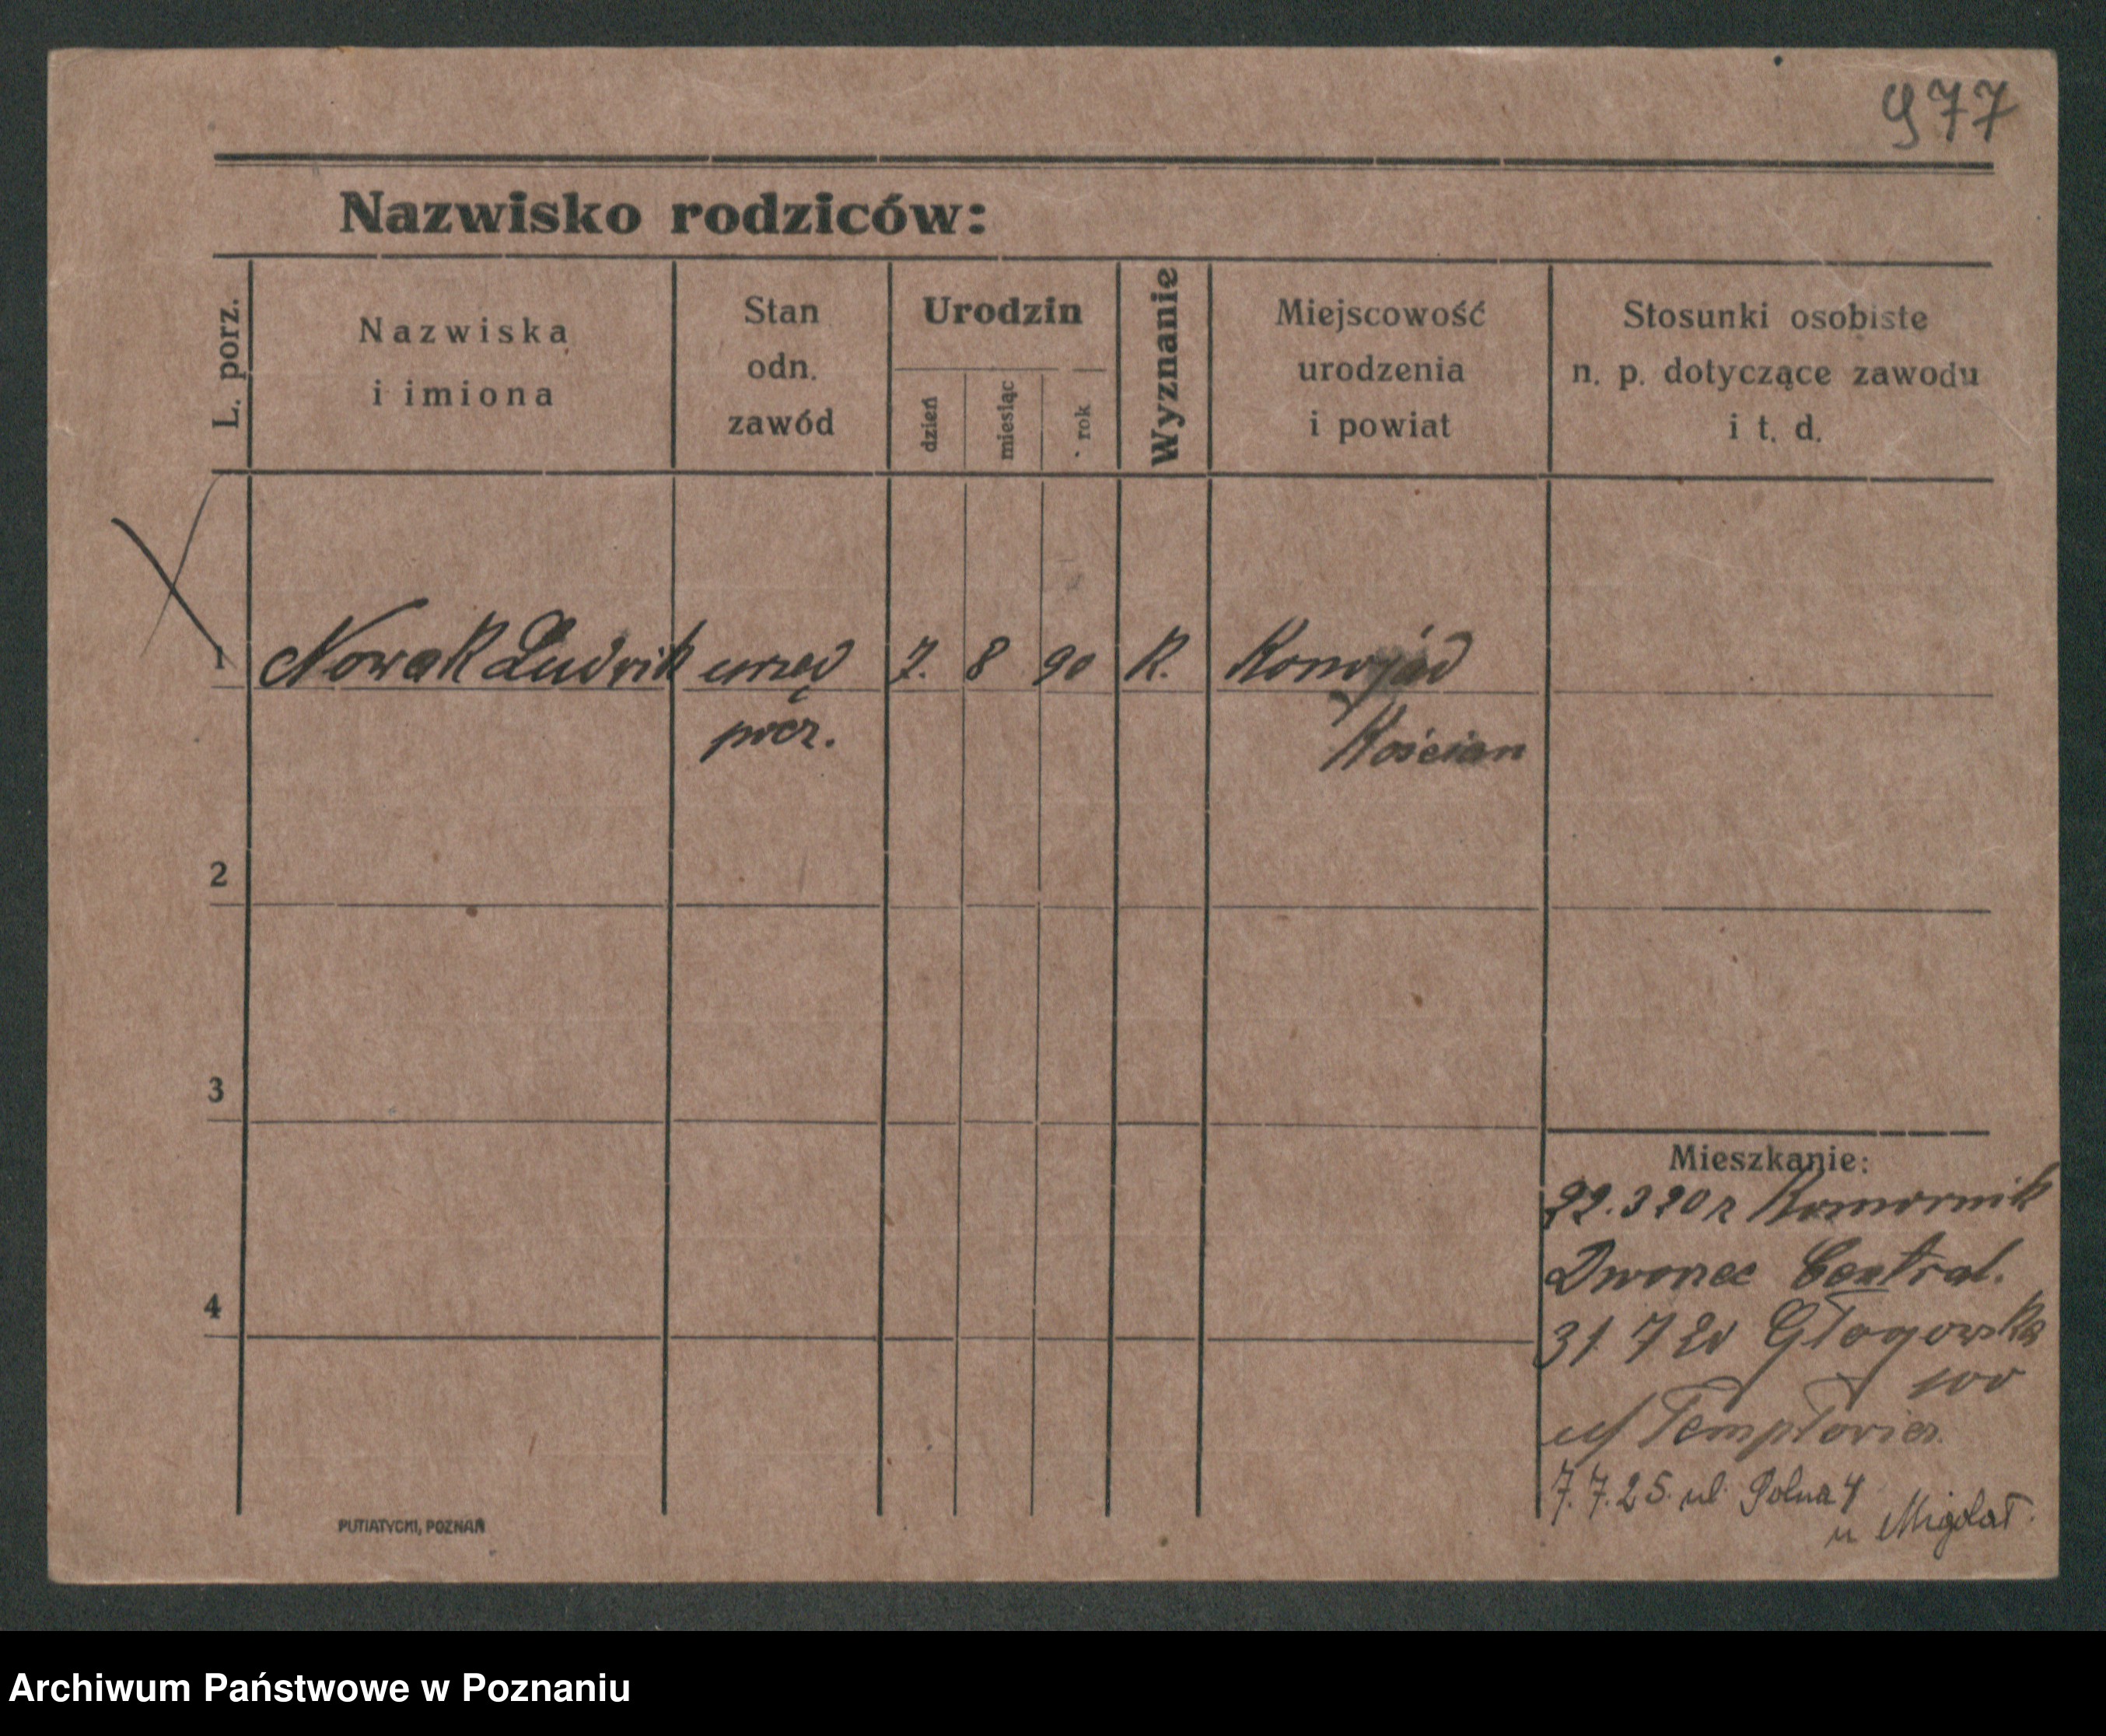 977
Nazwisko rodziców:
L. porz.
Nazwiska
i imiona
Stan
odn.
zawód
Urodzin
dzień
miesiąc
rok
Wyznanie
Miejscowość
urodzenia
i powiat
Stosunki osobiste
n. p. dotyczące zawodu
i t. d.
1 Nowak Ludwik urzęd 7. 8 90 K. Konojad
pocz. Kościan
2
3
4
Mieszkanie:
22.3 20 r Komornik
Dworzec Central.
31 7 20 Głogowska
100
u/
7.7.25. ul. Polna 4
u Migdał.
PUTIATYCKI, POZNAŃ
Archiwum Państwowe w Poznaniu